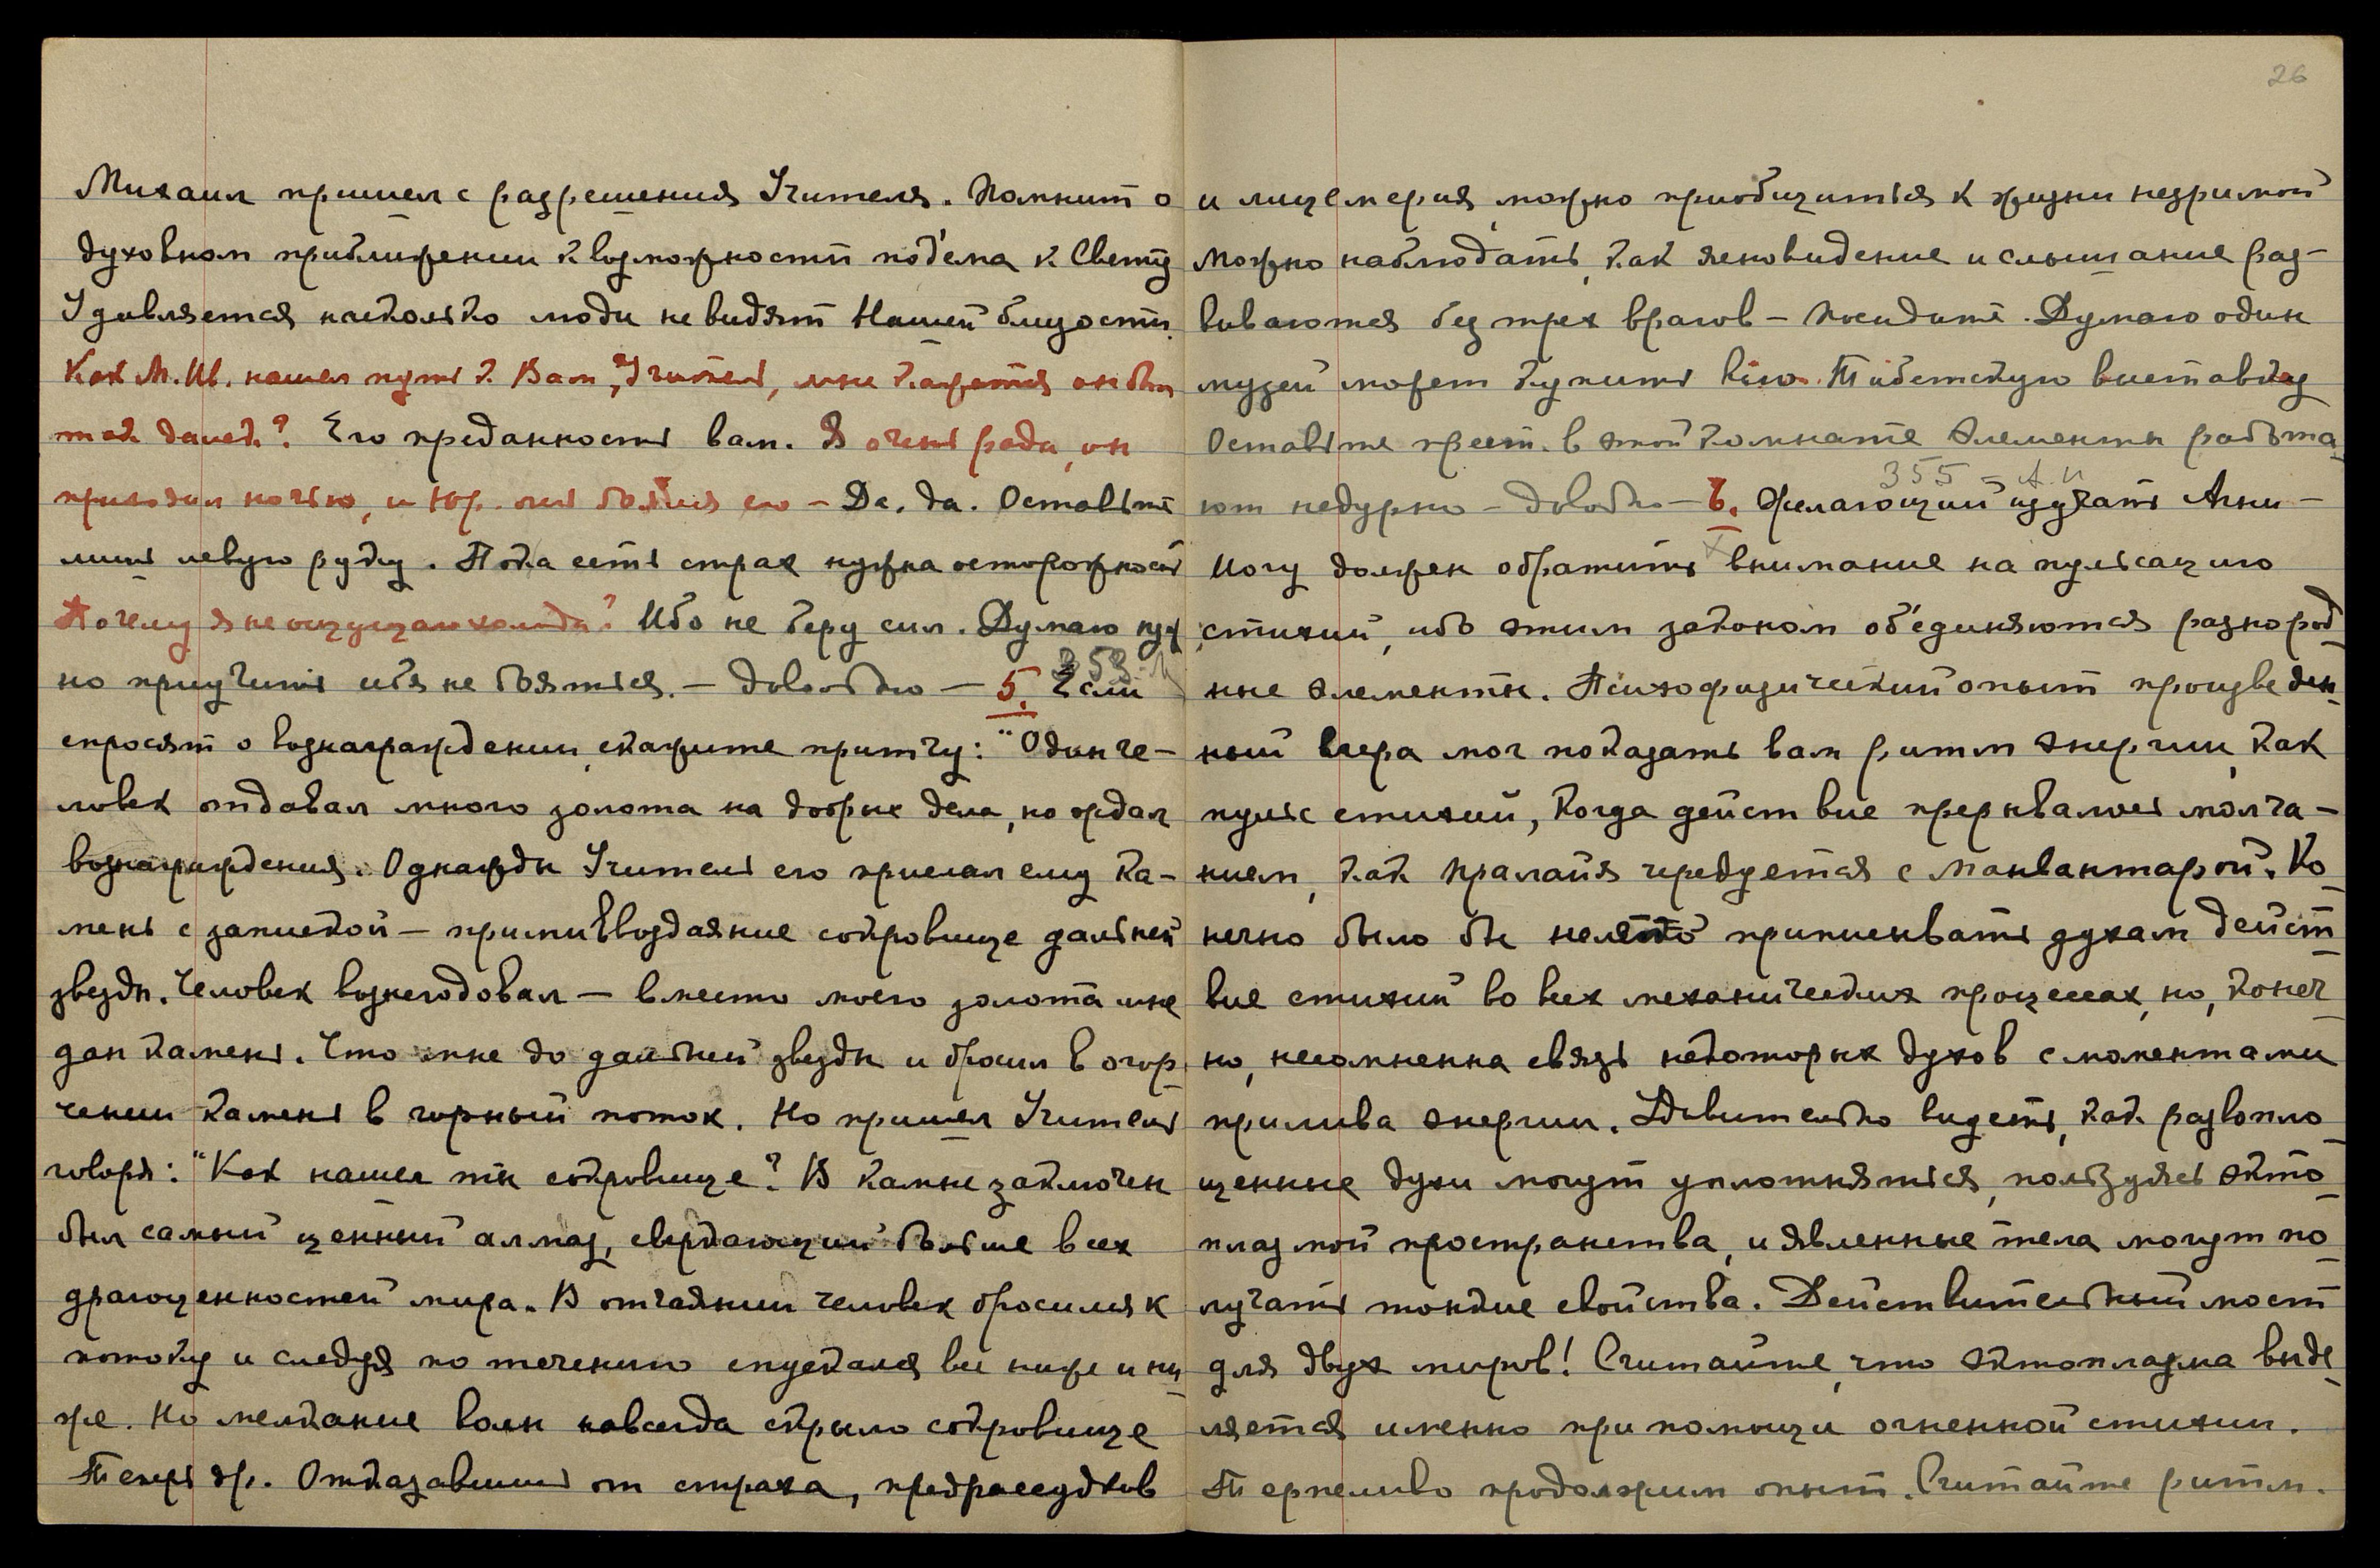 Михаил пришел с разрешения Учителя. Помнит о
духовном приближении к возможности под'ема к Свету
Удивляется насколько люди не видят Нашей близости.
Как М. Ив. нашел путь к Вам, Учитель, мне кажется он был
так далек? Его преданность вам. Я очень рада, он
приходил ночью, и Юр. очень боялся его — Да, да. Оставьте
лишь левую руку. Пока есть страх нужна осторожность
Почему я не ощущаю холода? Ибо не беру сил. Думаю нуж
но приучить себя не бояться. — довольно — 5. Если 353
спросят о вознаграждении, скажите притчу: "Один че-
ловек отдавал много золота на добрые дела, но ждал
вознаграждения. Однажды Учитель его прислал ему ка-
мень с запиской — прими в воздаяние сокровище дальней
звезды. Человек вознегодовал — вместо моего золота мне
дан камень. Что мне до дальней звезды и бросил в огор
чении камень в горный поток. Но пришел Учитель
говоря: "Как нашел ты сокровище? В камне заключен
был самый ценный алмаз, сверкающий больше всех
драгоценностей мира. В отчаянии человек бросился к
потоку и следуя по течению спускался все ниже и ни
же. Но мелькание волн навсегда скрыло сокровище
Теперь др. Отказавшись от страха, предрассудков
26
и лицемерия, можно приобщиться к жизни незримой
можно наблюдать, как ясновидение и слышание раз-
виваются без трех врагов — посидите. Думаю один
музей может купить всю Тибетскую выставку
Оставьте прест. в этой комнате Элементы работа
355 — А.И
ют недурно — довольно — 6. Желающий изучать Агни —
Иогу должен обратить внимание на пульсацию
стихий, ибо этим законом об'единяются разнород
ные элементы. Психофизический опыт произведен
ный вчера мог показать вам ритм энергии, как
пульс стихий, когда действие прерывалось молча-
нием, как пралайя чередуется с манвантарой. Ко
нечно было бы нелепо приписывать духам дейст
вие стихий во всех механических процессах, но, конеч
но, несомненна связь некоторых духов с моментами
прилива энергии. Удивительно видеть, как развопло
щенные духи могут уплотняться, пользуясь экто
плазмой пространства, и явленные тела могут по
лучать тонкие свойства. Действительный мост
для двух миров! Считайте, что эктоплазма выде
ляется именно при помощи огненной стихии.
Терпеливо продолжим опыт. Считайте ритм.